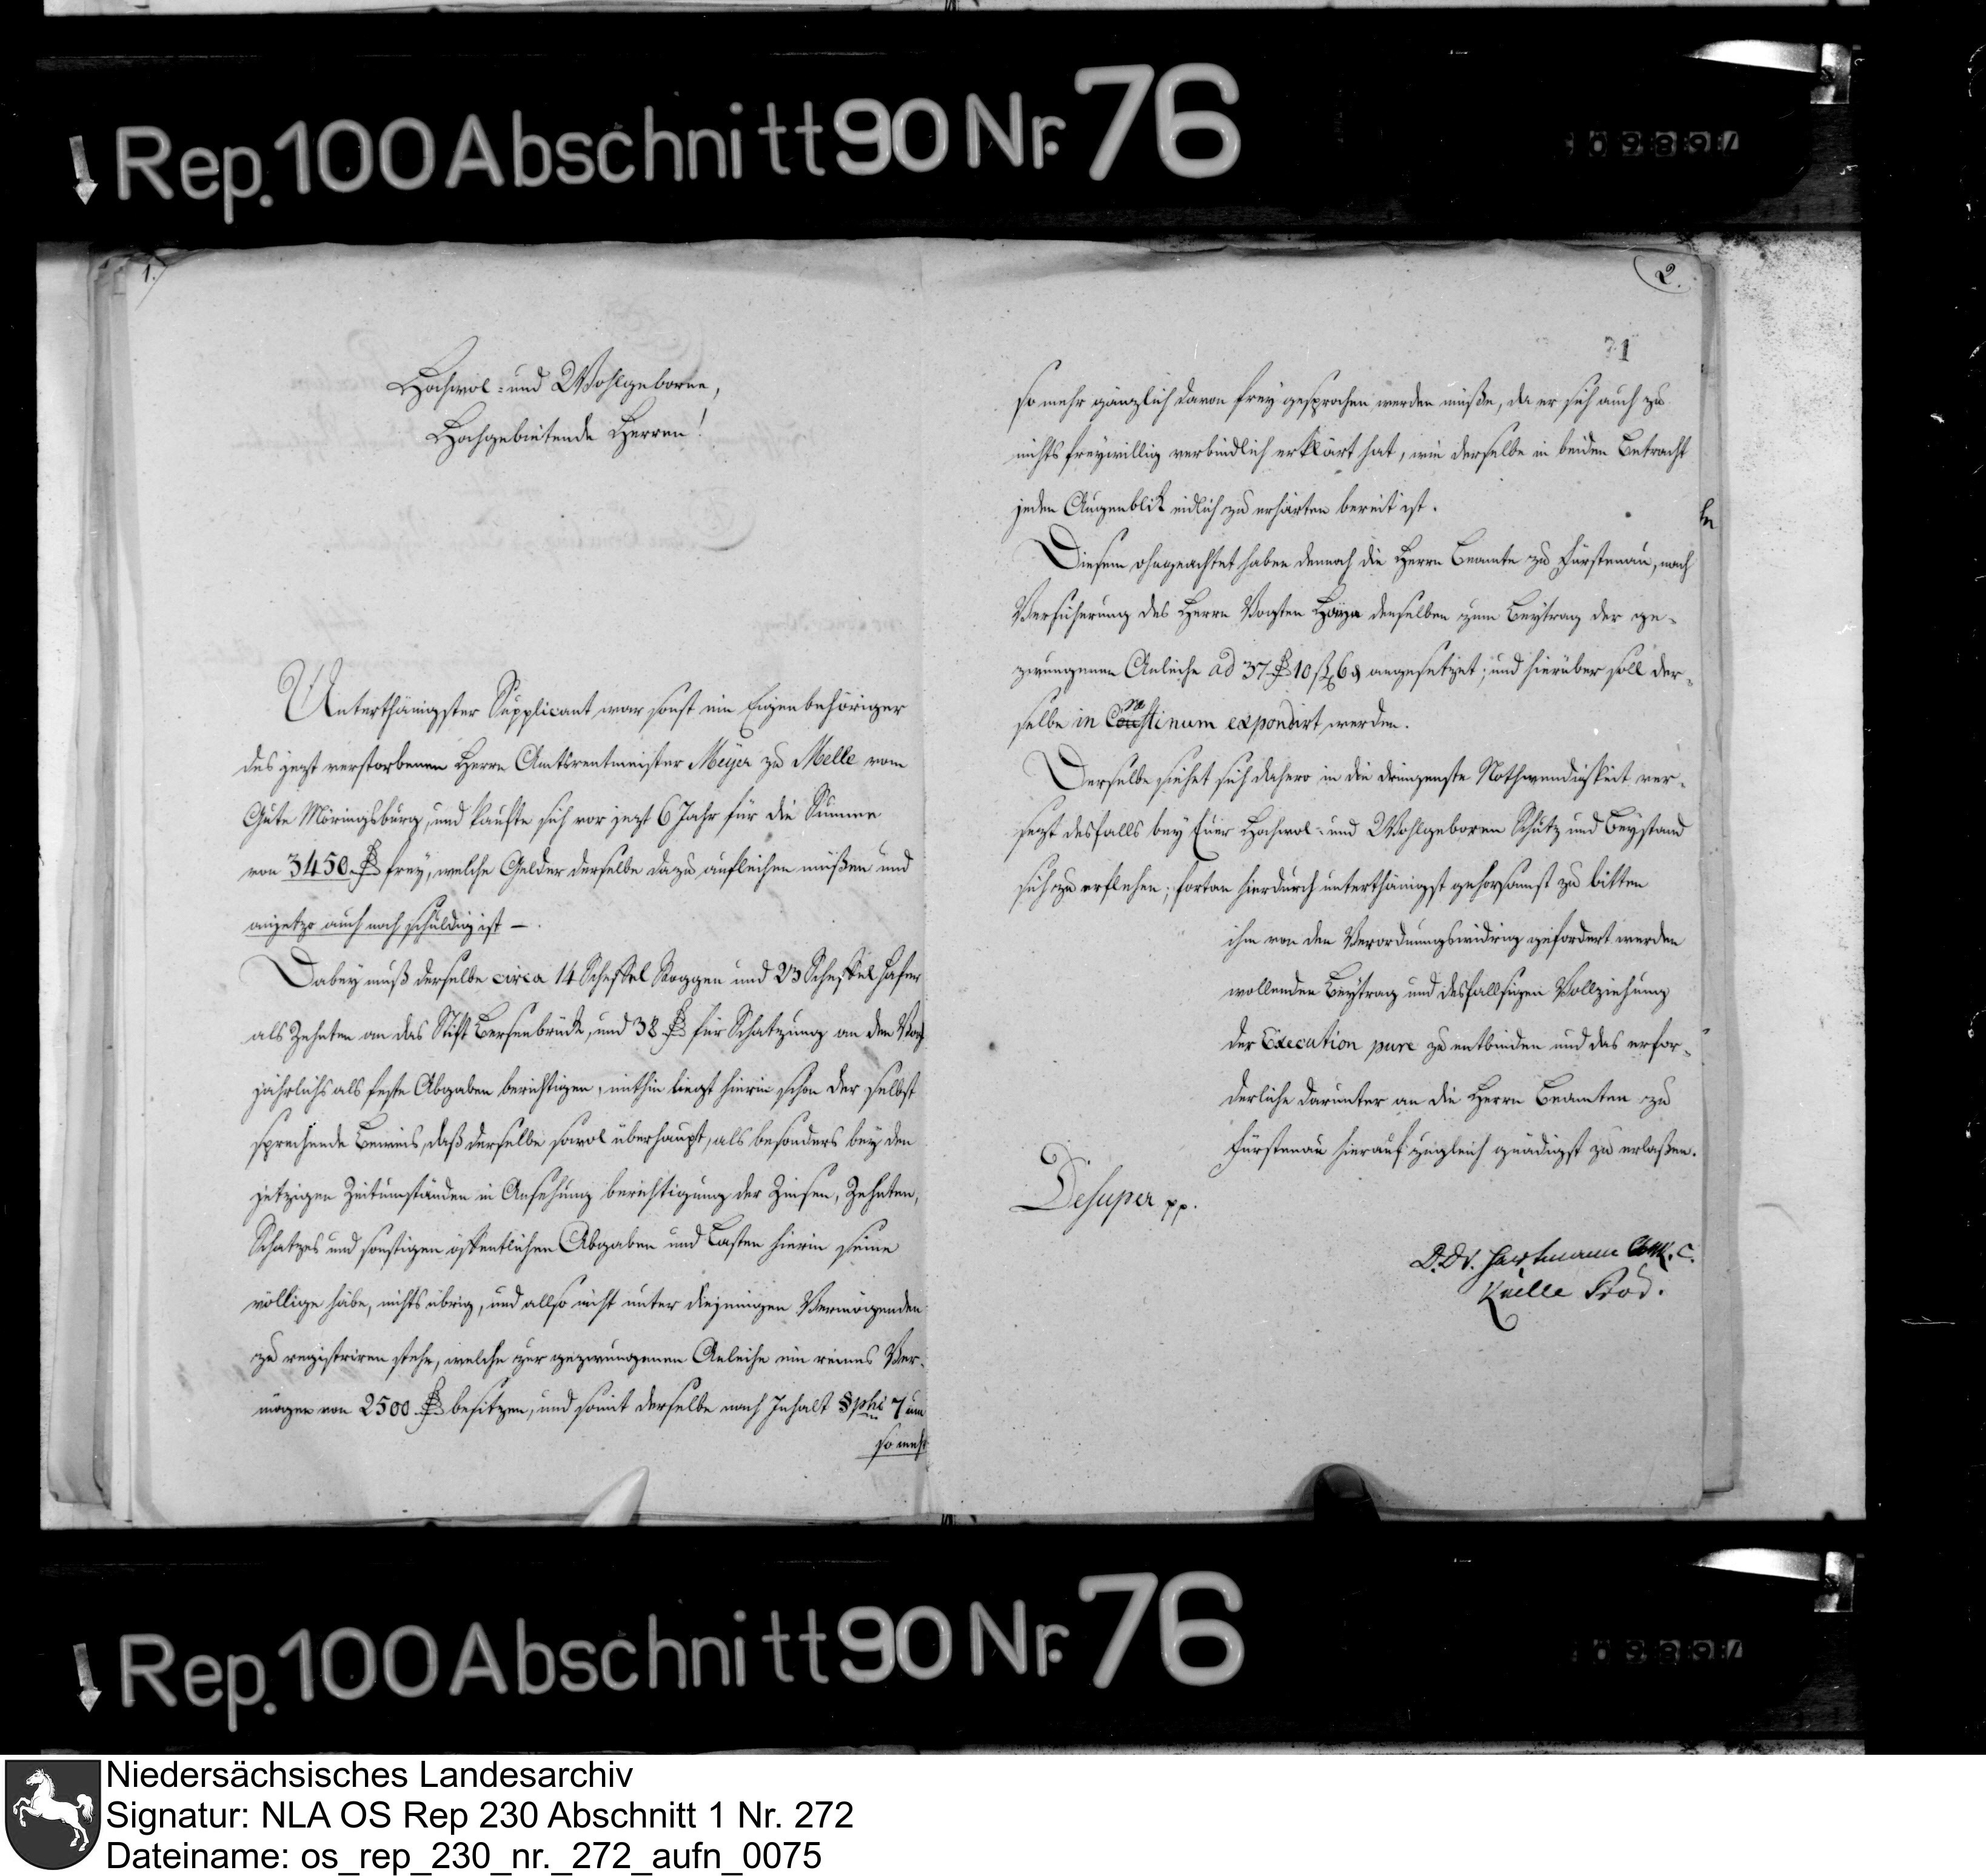 Rep. 100 Abschnitt 90 Nr. 76
1.
Hochwol- und Wohlgeborne,
Hochgebietende Herren!
Unterthänigster Supplicant war sonst ein Eigenbehöriger
des jezt verstorbenen Herrn Amtsrentmeister Meyer zu Melle vom
Gute Möringsburg, und kaufte sich vor jezt 6 Jahr für die Summe
von 3450 rt frey, welche Gelder derselbe dazu aufleihen müßen und
anjetzo auch noch schuldig ist —.
Dabey muß derselbe circa 14 Scheffel Roggen und 23 Scheffel Hafer
als Zehnten an das Stift Bersenbrück, und 38 rt für Schatzung an den Vogt
jährlichs als feste Abgaben berichtigen, mithin liegt hierin schon der selbst
sprechende Beweis, daß derselbe sowol überhaupt, als besonders bey den
jetzigen Zeitumständen in Ansehung berichtigung der Zinsen, Zehnten,
Schatzes und sonstigen öffentlichen Abgaben und Lasten hierin seine
völlige habe, nichts übrig, und allso nicht unter diejenigen Vermögenden
zu registriren stehe, welche zur gezwungenen Anleihe ein reines Ver-
mögen von 2500 rt besitzen, und somit derselbe nach Inhalt §phi 7 um
so mehr
2.
71
so mehr gänzlich davon frey gesprochen werden müße, da er sich auch zu
nichts freywillig verbindlich erklärt hat, wie derselbe in beiden Betracht
jeden Augenblik eidlich zu erhärten bereit ist.
Diesem ohngeachtet haben dennoch die Herrn Beamte zu Fürstenau, nach
Versicherung des Herrn Vogten Hoya denselben zum Beytrag der ge-
zwungenen Anleihe ad 37 rt 10 ß 6 d angesetzet; und hierüber soll der-
selbe in Crastinum exponirt werden.
Derselbe siehet sich dahero in die dringenste Nothwendigkeit ver-
sezt desfalls bey Euer Hochwol- und Wohlgeboren Schutz und Beystand
sich zu erflehen; fortan hierdurch unterthänigst gehorsamst zu bitten
ihn von den Verordnungswidrig gefordert werden
wollenden Beytrag und desfallsigen Vollziehung
der Execution pure zu entbinden und das erfor-
derliche darunter an die Herrn Beamten zu
Fürstenau hierauf zugleich gnädigst zu erlaßen.
Desuper pp.
D. Dr. Hartmann
Knille Prod.
Rep. 100 Abschnitt 90 Nr. 76
Niedersächsisches Landesarchiv
Signatur: NLA OS Rep 230 Abschnitt 1 Nr. 272
Dateiname: os_rep_230_nr._272_aufn_0075